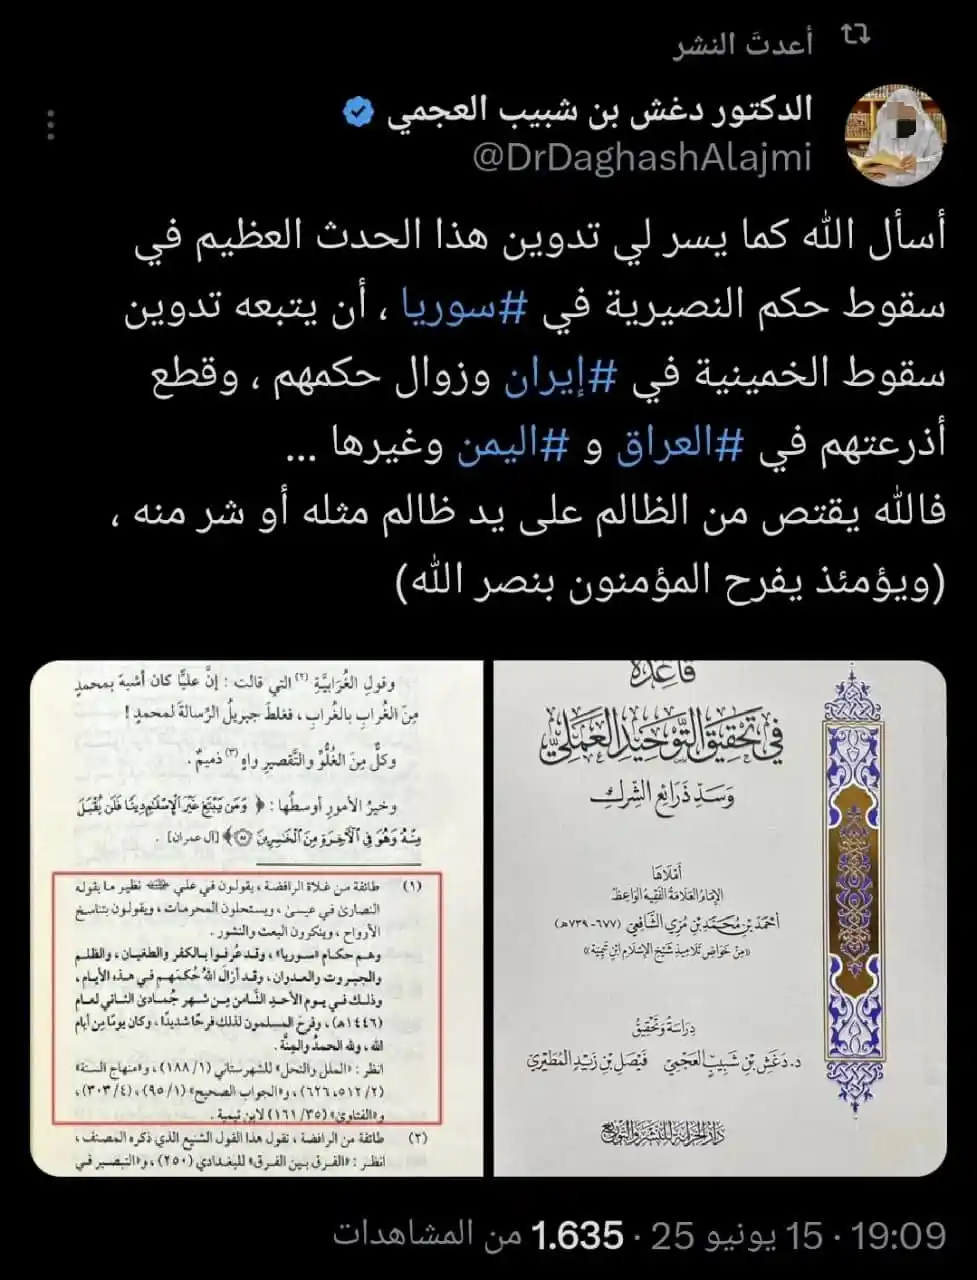 أعدتَ النشر
الدكتور دغش بن شبيب العجمي
@DrDaghashAlajmi
أسأل الله كما يسر لي تدوين هذا الحدث العظيم في
سقوط حكم النصيرية في #سوريا ، أن يتبعه تدوين
سقوط الخمينية في #إيران وزوال حكمهم ، وقطع
أذرعتهم في #العراق و #اليمن وغيرها ...
فالله يقتص من الظالم على يد ظالم مثله أو شر منه ،
(ويؤمئذ يفرح المؤمنون بنصر الله)
قاعدة
في تحقيق التوحيد العملي
وسد ذرائع الشرك
أملاها
الإمام العلامة الفقيه الواعظ
أحمد بن محمد بن مري الشافعي (٦٧٧-٧٣٩هـ)
«من خواص تلاميذ شيخ الإسلام ابن تيمية»
دراسة وتحقيق
د. دغش بن شبيب العجمي فيصل بن زيد المطيري
دار الخزانة للنشر والتوزيع
وقول الغُرَابيَّةِ (٢) التي قالت : إنَّ عليًّا كان أشبهَ بمحمدٍ
مِنَ الغُراب بالغُراب ، فغلطَ جبريلُ الرِّسالةَ لمحمدٍ !
وكلٌّ مِنَ الغلُوِّ والتَّقصيرِ واهٍ (٣) ذميمٌ .
وخيرُ الأمورِ أوسطُها : ﴿ وَمَن يَبْتَغِ غَيْرَ ٱلْإِسْلَٰمِ دِينًا فَلَن يُقْبَلَ
مِنْهُ وَهُوَ فِى ٱلْءَاخِرَةِ مِنَ ٱلْخَٰسِرِينَ ۝٨٥﴾ [آل عمران] .
(١) طائفة من غلاة الرافضة ، يقولون في علي نظير ما يقوله
النصارى في عيسى ، ويستحلون المحرمات ، ويقولون بتناسخ
الأرواح ، وينكرون البعث والنشور .
وهم حكام «سوريا» ، وقد عُرفوا بالكفر والطغيان ، والظلم
والجبروت والعدوان ، وقد أزالَ اللهُ حُكمَهم في هذه الأيام ،
وذلك في يوم الأحد الثَّامن مِن شهر جُمادىٰ الثاني لعام
(١٤٤٦هـ) ، وفرحَ المسلمون لذلك فرحًا شديدًا ، وكان يومًا مِن أيام
الله ، ولله الحمدُ والمِنَّة .
انظر : «الملل والنحل» للشهرستاني (١/ ١٨٨) ، و«منهاج السنة»
(٢/ ٥١٢، ٦٢٦) ، و«الجواب الصحيح» (١/ ٩٥) ، (٤/ ٣٠٣) ،
و«الفتاوىٰ» (٣٥/ ١٦١) لابن تيمية .
(٢) طائفة من الرافضة ، تقول هذا القول الشنيع الذي ذكره المصنف ،
انظر : «الفرق بين الفرق» للبغدادي (٢٥٠) ، و«التبصير في
19:09 · 15 يونيو 25 · 1.635 من المشاهدات